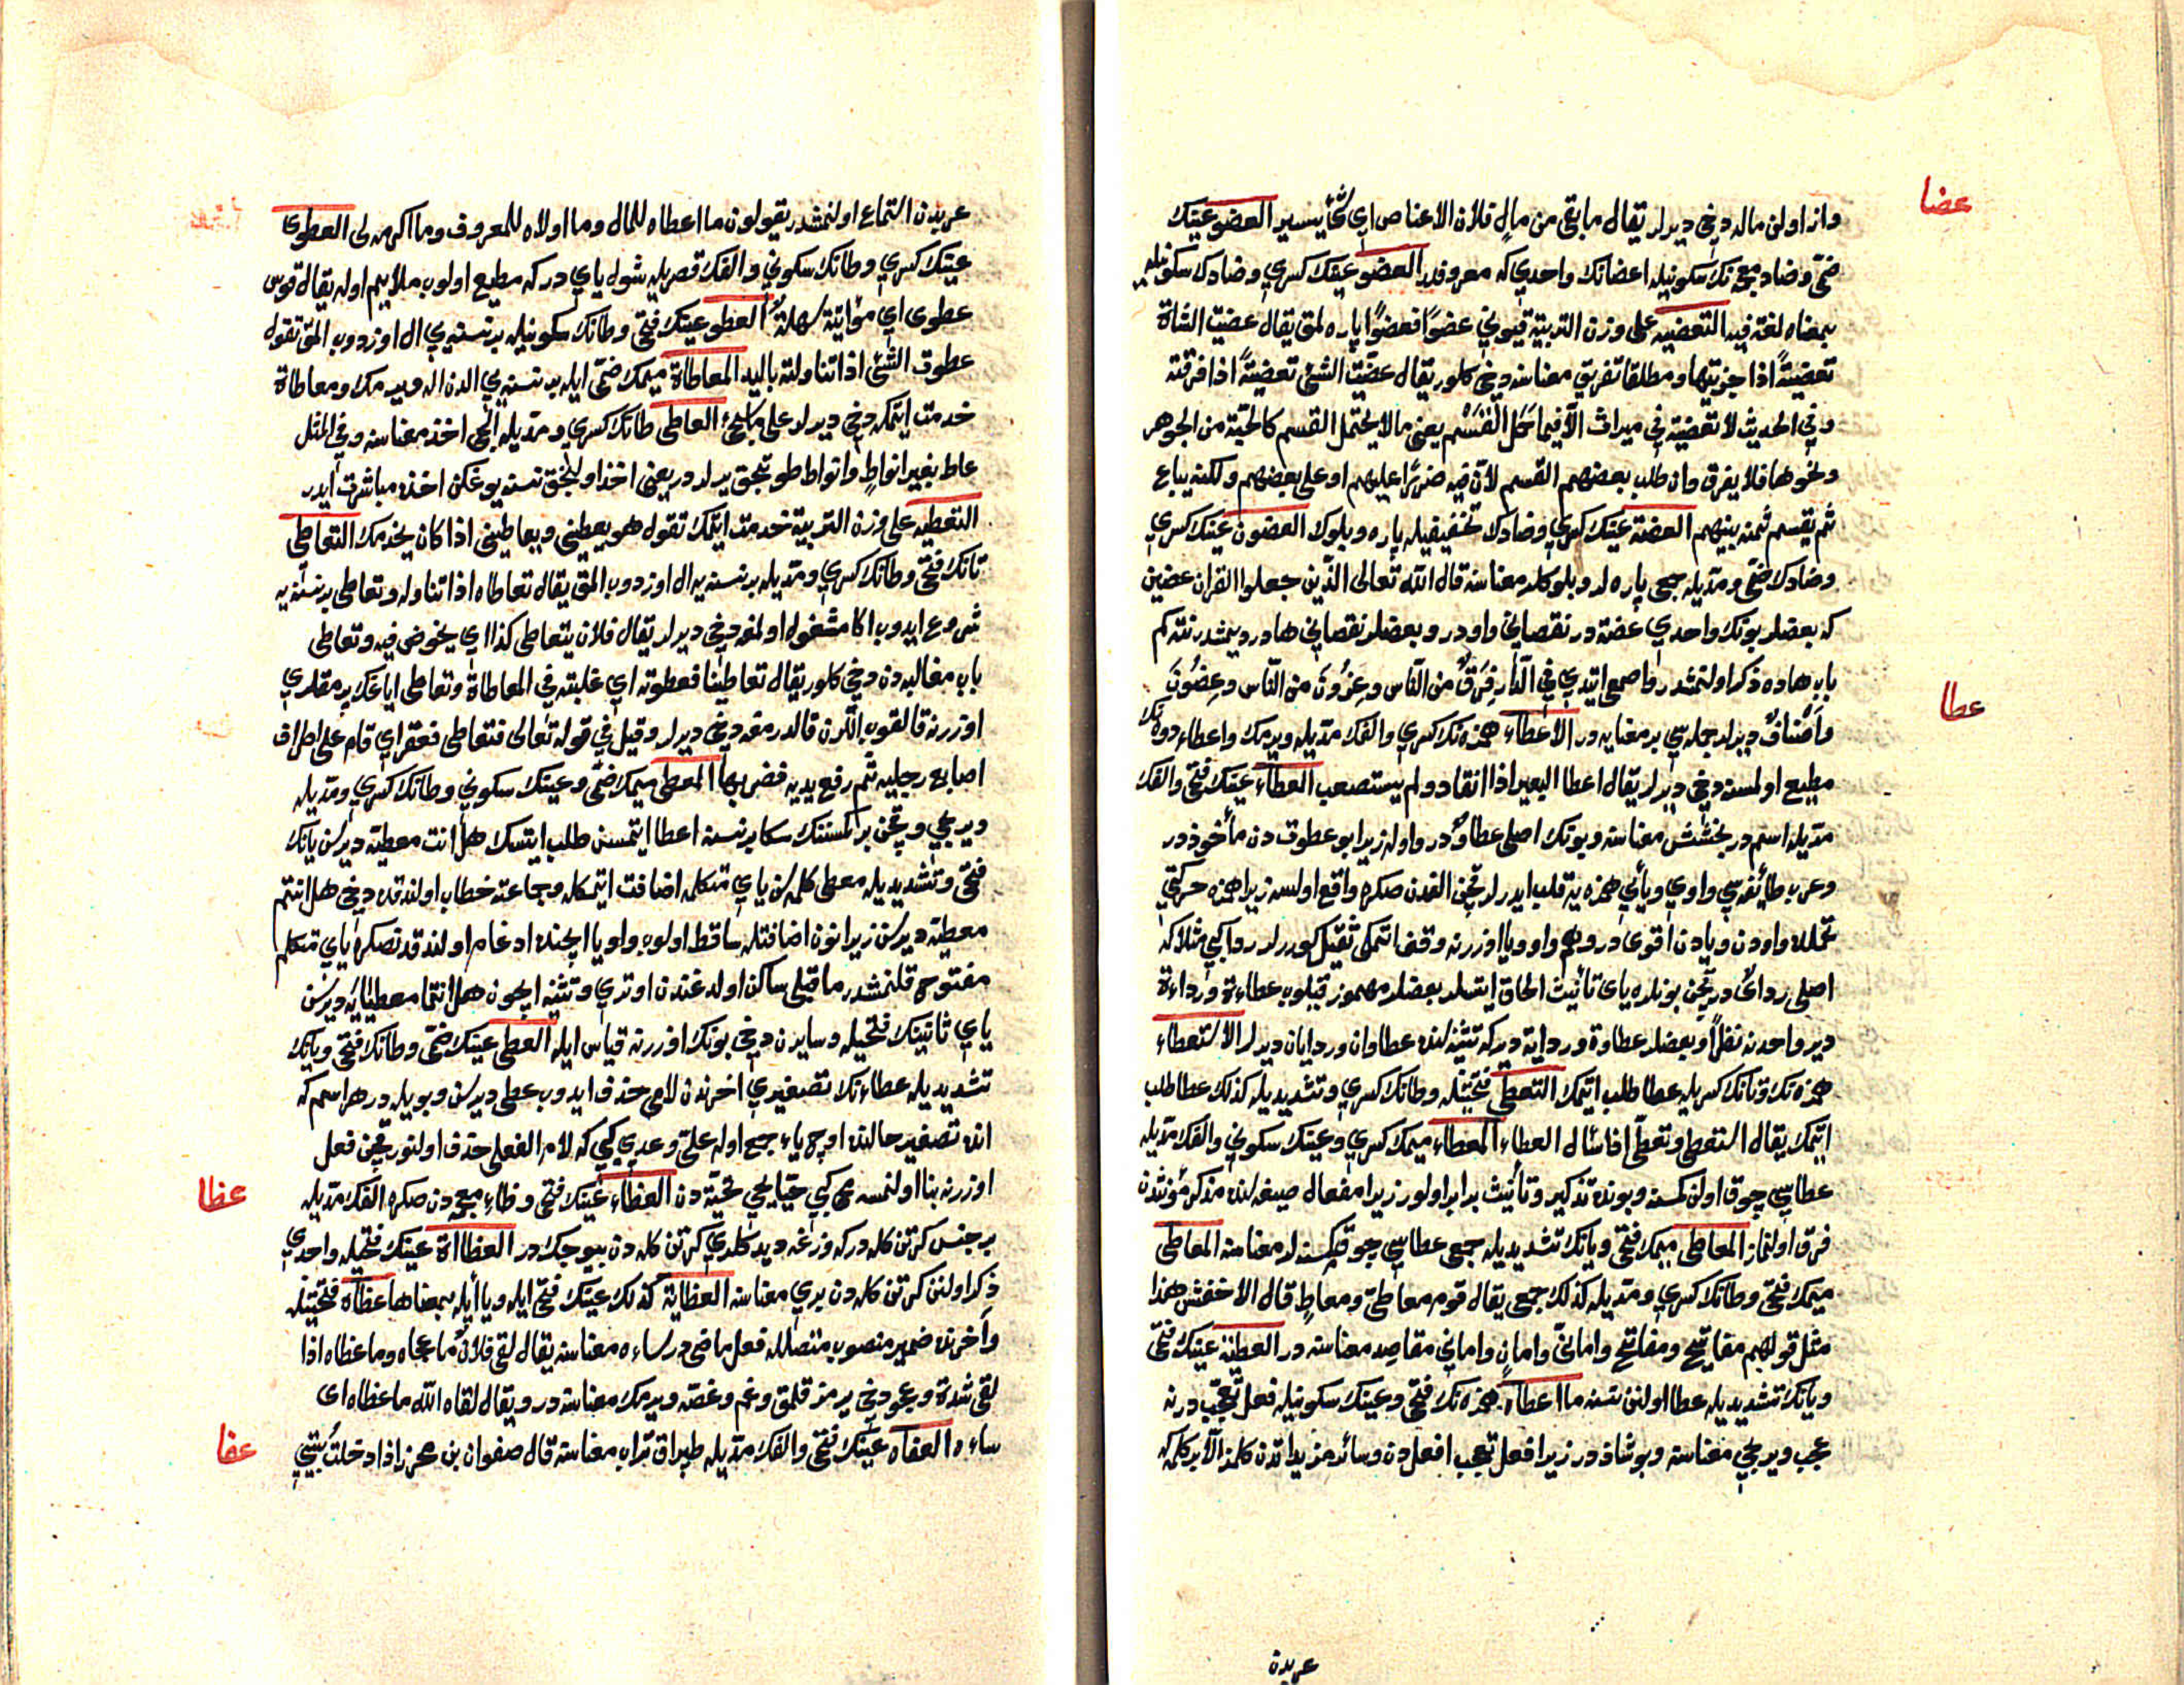 عضا
واز اولن ماله دخی دیرلر یقال ما بقی من مال فلان الا عناص ای شئ یسیر العضو عینك
ضمی وضاد معجمه نك سكونیله اعضانك واحدی كه معروفدر العضو عینك كسری وضادك سكونیله
بمعناه لغة فیه التعضیه علی وزن التربیة قیونی عضوًا فعضوًا پاره لمق یقال عضیت الشاة
تعضیةً اذا جزیتها ومطلقا تفریق معناسنه دخی كلور یقال عضیت الشئ تعضیةً اذا فرقته
وفی الحدیث لا تعضیة فی میراث الا فیما حمل القسم یعنی ما لا یحتمل القسم كالحبة من الجوهر
ونحوها فلا یفرق وان طلب بعضهم القسم لان فیه ضررًا علیهم او علی بعضهم ولكنه یباع
ثم یقسم ثمنه بینهم العضة عینك كسری وضادك تخفیفیله پاره وبلوك العضون عینك كسری
وضادك ضمی ومدیله جمعی پاره لر وبلوكلر معناسنه قال الله تعالی الذین جعلوا القران عضین
كه بعضلر بونك واحدی عضة در نقصانی واودر وبعضلر نقصانی هادر دیمشدر نته كم
باب هاده ذكر اولنمشدر واصمعی ایتدی فی الدار فرق من الناس وعزون من الناس وعضون
عطا
واصناف دیرلر جمله سی بر معنایه در الاعطاء همزه نك كسری والفك مدیله ویرمك واعطاء دوه نك
مطیع اولمسنه دخی دیرلر یقال اعطا البعیر اذا انقاد ولم یستصعب العطاء عینك فتحی والفك
مدیله اسمدر بخشش معناسنه وبونك اصلی عطاو در واوله زیرا بو عطوت دن مأخوذ در
وعرب طائفه سی واوی ویائی همزه یه قلب ایدرلر قچن الفدن صكره واقع اولسه زیرا همزه حركتی
تحملده واودن ویادن اقوی در وهم واو ویا اوزرنه وقف اتمكی ثقیل كوررلر ردا كبی مثلا كه
اصلی ردای در قچن بونلره یای تأنیث الحاق ایتسلر بعضلر مهموز قیلوب عطاءة ورداءة
دیر واحدنه نظراً وبعضلر عطاوة وردایة دیر كه تثنیه لنده عطاوان وردایان دیرلر الاستعطاء
همزه نك وتانك كسریله عطا طلب ایتمك التعطی فتحتینله وطانك كسری وتشدیدیله كذلك عطا طلب
ایتمك یقال استعطی وتعطی اذا سأل العطاء المعطاء میمك كسری وعینك سكونی والفك مدیله
عطاسی چوق اولن كمسنه وبونده تذكیر وتأنیث برابر اولور زیرا مفعال صیغه لنده مذكر مؤنثدن
فرق اولنماز المعاطی میمك فتحی ویانك تشدیدیله جمعی عطاسی چوق كمسنه لر معناسنه المعاطی
میمك فتحی وطانك كسری ومدیله كذلك جمعی یقال قوم معاطی ومعاط قال الاخفش هذا
مثل قولهم مفاتیح ومفاتح وامانی وامان وامانی مقاصد معناسنه در العطیة عینك فتحی
ویانك تشدیدیله عطا اولنن نسنه ما اعطاه همزه نك فتحی وعینك سكونیله فعل تعجب درنه
عجب ویریجی معناسنه وبو شاذ در زیرا افعل تعجب افعل دن وسائر مزیداتدن كلمز الا بر كلمه كه
عربدن
عربدن استماع اولنمشدر یقولون ما اعطاه للمال وما اولاه للمعروف وما اكرمه لی العطوی
عینك كسری وطانك سكونی والفك قصریله شوله یای در كه مطیع اولوب ملایم اوله یقال قوس
عطوی ای مؤاتیة سهلة العطو عینك فتحی وطانك سكونیله بر نسنه یی ال اوزدوب المق تقول
عطوت الشئ اذا تناولته بالید المعاطاة میمك ضمی ایله بر نسنه یی الدن اله ویرمك ومعاطاة
خدمت ایتمكه دخی دیرلر العاطی طانك كسری ومدیله الیجی اخذ معناسنه وفی المثل
عاط بغیر انواط وانواط طوتجق یرلر در یعنی اخذ اولنجق نسنه یوغكن اخذه مباشرت ایدر
التعطیه علی وزن التربیة خدمت ایتمك تقول هو یعطینی ویعاطینی اذا كان یخدمك التعاطی
تانك فتحی وطانك كسری ومدیله بر نسنه یه ال اوزدوب المق یقال تعاطاه اذا تناوله وتعاطی بر نسنه یه
شروع ایدوب اكا مشغول اولمغه دخی دیرلر یقال فلان یتعاطی كذا ای یخوض فیه وتعاطی
باب مغالبه دن دخی كلور یقال تعاطینا فعطوته ای غلبته فی المعاطاة وتعاطی ایاغك پرمقلری
اوزرنه قالقوب اللرن قالدرمغه دخی دیرلر وقیل فی قوله تعالی فتعاطی فعقر ای قام علی اطراف
اصابع رجلیه ثم رفع یدیه فضربها المعطی میمك ضمی وعینك سكونی وطانك كسری ومدیله
ویریجی وقچن بر كمسنه نك سكا بر نسنه اعطا ایتمسن طلب ایتسك هل انت معطیه دیرسن یانك
فتحی وتشدیدیله معطی كلمه سن یای متكلمه اضافت ایتمكله وجماعته خطاب اولندقده دخی هل انتم
معطیه دیرسن زیرا نون اضافتله ساقط اولوب واو یا ایچنده ادغام اولندقدنصكره یای متكلم
مفتوح قلنمشدر ما قبلی ساكن اولدغندن اوتری وتثنیه ایچون هل انتما معطیایه دیرسن
یای ثانینك فتحیله وسایرن دخی بونك اوزرنه قیاس ایله العطی عینك ضمی وطانك فتحی ویانك
تشدیدیله عطاءنك تصغیری اخرندن لامی حذف ایدوب عطی دیرسن وبویله در هر اسم كه
انده تصغیر حالنده اوچ یاء جمع اوله علی وعدی كبی كه لام الفعلی حذف اولنور قچن فعل
عظا
اوزرنه بنا اولنمسه محیی كبی تحیة دن العظاء عینك فتحی وظاء معجمه دن صكره الفك مدیله
بر جنس كرتن كله در كه وزغه دیدكلری كرتن كله دن بیوجكدر العظاءة عینك فتحیله واحدی
ذكر اولنن كرتن كله دن بری معناسنه العظایة كذلك عینك فتحی ایله ویا ایله بمعناها عظاه فتحتینله
واخرنده ضمیر منصوب متصلله فعل ماضی در ساءه معناسنه یقال لقی فلان ما عجاه وما عظاه اذا
لقی شدة وعجو دخی یرمز قلمق وغم وغصه ویرمك معناسنه در ویقال لقاه الله ما عظاه ای
عفا
ساءه العفاء عینك فتحی والفك مدیله طپراق تراب معناسنه قال صفوان بن محرز اذا دخلت بیتی